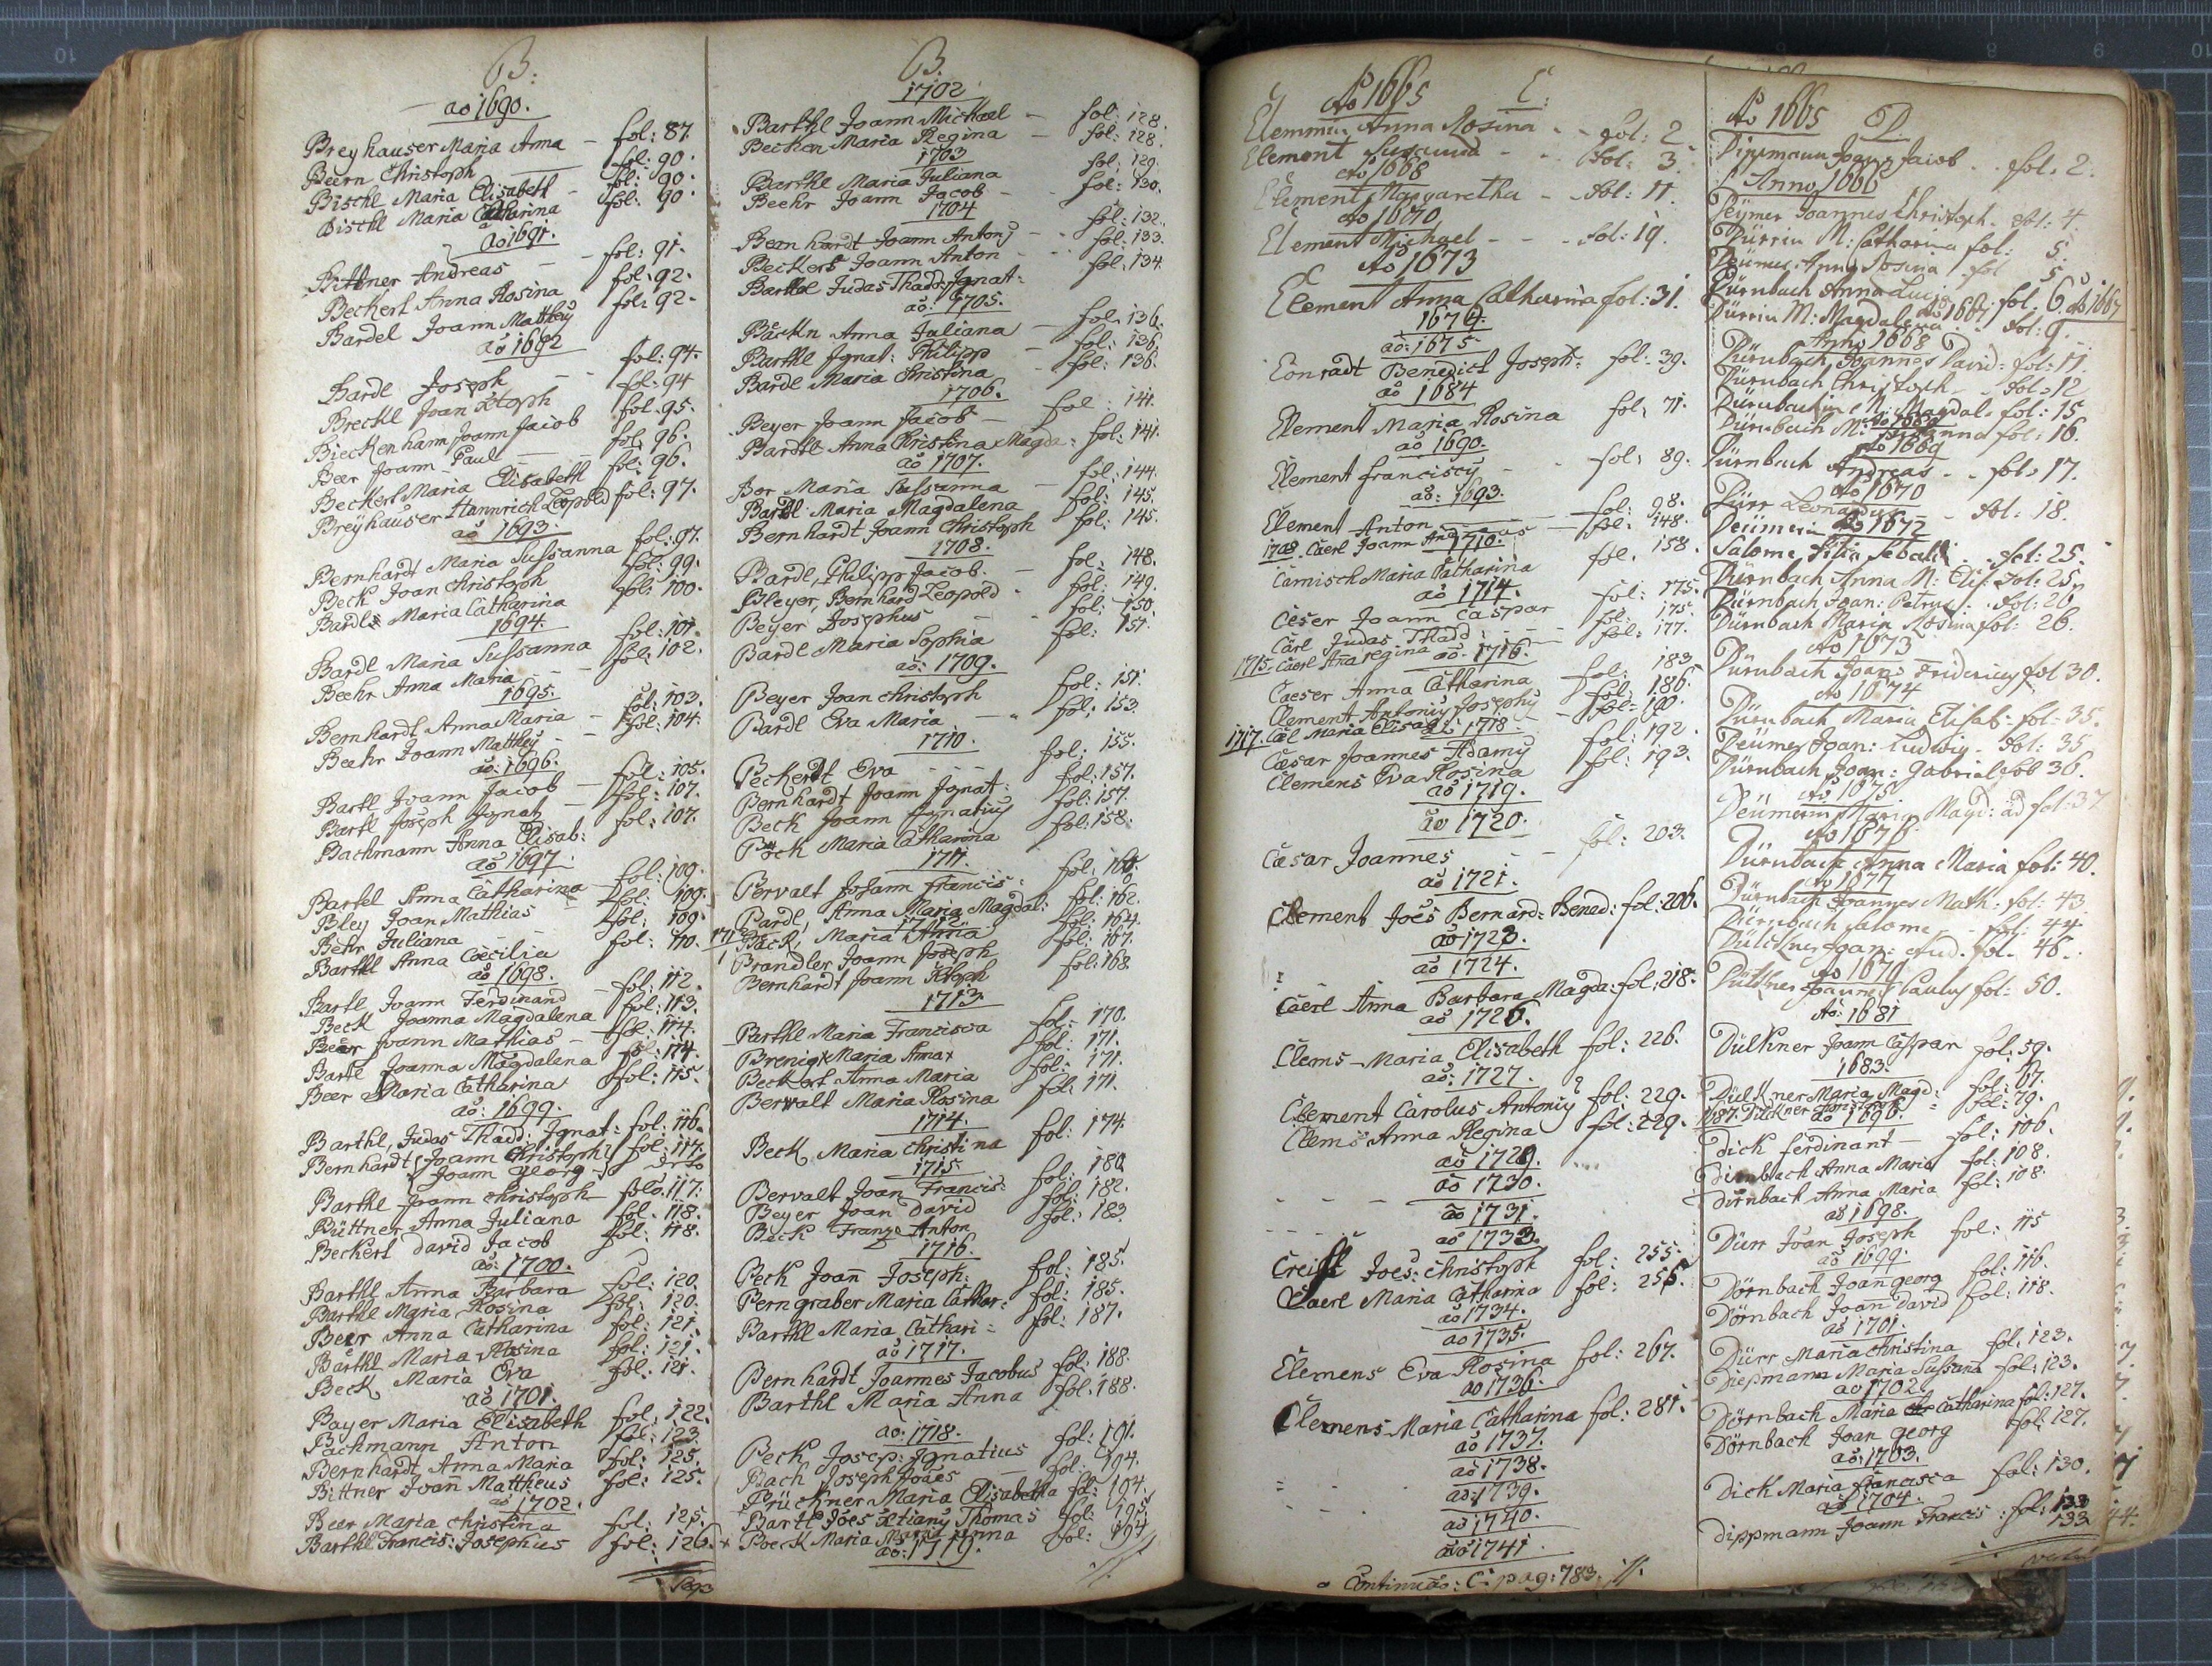 B:
ao 1690.
Breyhauser Maria Anna – fol: 87.
Beern Christoph fol: 90.
Bischl Maria Elisabeth – fol: 90.
Bischl Maria Catharina fol: 90.
ao 1691.
Bittner Andreas – – fol: 91.
Beckert Anna Rosina fol: 92.
Bardel Joann Matthey fol: 92.
ao 1692
Bardl Joseph – – fol: 94.
Brechl Joan Xtoph fol: 94
Bieckenham Joann Jacob fol: 95.
Beer Joann Paul – – fol: 96.
Beckert Maria Elisabeth fol: 96.
Breyhauser Hennrich Leopold fol: 97.
ao 1693.
Bernhardt Maria Sussanna fol: 97.
Beck Joan Christoph fol: 99.
Bardl Maria Catharina fol: 100.
1694.
Bardl Maria Sussanna fol: 101.
Beehr Anna Maria – – fol: 102.
1695.
Bernhardt Anna Maria – fol: 103.
Beehr Joann Matthey – – fol: 104.
ao: 1696.
Bartl Joann Jacob – fol: 105.
Bartl Joseph Ignat – fol: 107.
Bachmann Anna Elisab: fol: 107.
ao 1697.
Bartel Anna Catharina fol: 109.
Bley Joan Mathias – fol: 109.
Behr Juliana – – fol: 109.
Barthl Anna Coecilia fol: 110.
ao 1698.
Bartl Joann Ferdinand – fol: 112.
Beck Joanna Magdalena fol: 113.
Beer Joann Mathias – fol: 114.
Bartl Joanna Magdalena fol: 114.
Beer Maria Catharina fol: 115.
ao: 1699.
Barthl, Judas Thadd: Ignat: fol: 116.
Bernhardt Joann Christoph fol: 117.
Joann Georg
Barthl Joann Christoph fol: 117.
Büttner Anna Juliana fol: 118.
Beckert David Jacob fol: 118.
ao: 1700.
Barthl Anna Barbara fol: 120.
Barthl Maria Rosina fol: 120.
Beer Anna Catharina fol: 121.
Barthl Maria Rosina fol: 121.
Beck Maria Eva fol: 121.
ao 1701.
Bayer Maria Elisabeth fol: 122.
Bachmann Anton fol: 123.
Bernhardt Anna Maria fol: 125.
Bittner Joann Mattheus fol: 125.
ao 1702.
Beer Maria Christina fol: 125.
Barthl Francis: Josephus fol: 126.
B.
1702
Barthl Joann Michael – fol: 128.
Becken Maria Regina – fol: 128.
1703
Barthl Maria Juliana fol: 129.
Beehr Joann Jacob – – fol: 130.
1704
Bernhardt Joann Antony – fol: 132.
Beckert Joann Anton – fol: 133.
Barthl Judas Thadd: Ignat: fol: 134.
ao: 1705.
Backn Anna Juliana – fol: 136.
Barthl Ignat: Philipp – fol: 136.
Bardl Maria Christina – fol: 136.
1706.
Beyer Joann Jacob – fol: 141.
Bardtl Anna Christina Magda: fol: 141.
ao 1707.
Bor Maria Sussanna – fol: 144.
Bardl Maria Magdalena fol: 145.
Bernhardt Joann Christoph fol: 145.
1708.
Bardl, Philipp Jacob. – fol: 148.
Bleyer, Bernhard Leopold. fol: 149.
Beyer Josephus – – fol: 150.
Bardl Maria Sophia fol: 151.
ao: 1709.
Beyer Joan Christoph fol: 151.
Bardl Eva Maria – fol: 153.
1710.
Beckerdt Eva – – – fol: 155.
Bernhardt Joann Ignat: fol: 157.
Beck Joann Ignatius fol: 157.
Böck Maria Catharina fol: 158.
1711.
Bervalt Johann Francis: fol: 160.
Bardl, Anna Maria Magdal: fol: 162.
1712.
Back, Maria Anna fol: 164.
Brandler Joann Joseph fol: 167.
Bernhardt Joann Xstoph fol: 168.
1713.
Barthl Maria Francisca fol: 170.
Brenig Maria Anna fol: 171.
Beckert Anna Maria fol: 171.
Berwalt Maria Rosina fol: 171.
1714.
Beck Maria Christina fol: 174.
1715.
Bervalt Joan Francis: fol: 180.
Beyer Joan David fol: 182.
Beck Franz Anton fol: 183.
1716.
Peck Joan̄ Joseph: fol: 185.
Perngraber Maria Cathar: fol: 185.
Barthl Maria Cathari= fol: 187.
ao 1717.
Bernhardt Joannes Jacobus fol: 188.
Barthl Maria Anna fol: 188.
ao: 1718.
Peck Josep: Ignatius fol: 191.
Bach Joseph Joães – fol: 194.
Brückner Maria Elisabetha fol: 194.
Bartl Joës Xtiany Thomas fol: 195.
Boeck Maria Anna fol: 194.
ao: 1719.
Ao 1665 C:
Clemmin Anna Rosina – – fol: 2.
Clement Susanna – – fol: 3.
Ao 1668
Clement Margaretha – fol: 11.
Ao 1670
Clement Michael – – – fol: 19.
Ao 1673
Clement Anna Catharina fol: 31.
1674.
ao: 1675.
Conradt Benedict Joseph: fol: 39.
ao 1684
Clement Maria Rosina fol: 71.
ao 1690.
Clement Franciscy – – fol: 89.
ao: 1693.
Clement Anton – – fol: 98.
1708. Caerl Joann fol: 148.
1710.
Camisch Maria Catharina fol: 158.
ao 1714.
Cäser Joann Caspar fol: 175.
Carl Judas Thadd: – fol: 175.
1715. Caerl Ana regina fol: 177.
ao. 1716.
Caeser Anna Catharina fol: 183.
Clement Antoniy Josephy fol: 186.
1717. Cael Maria Elisab: fol: 190.
1718
Cæsar Joannes Adamy fol: 192.
Clemens Eva Rosina fol: 193.
ao 1719.
ao 1720.
Cæsar Joannes – – fol: 203.
ao 1721.
Clement Joës Bernard: Bened: fol: 206.
ao 1723.
ao 1724.
Caerl Anna Barbara Magda: fol: 218.
ao 1726.
Clems Maria Elisabeth fol: 226.
ao: 1727.
Clement Carolus Antoniy fol: 229.
Clems Anna Regina fol: 229.
ao 1729.
ao 1730.
ao 1731.
ao 1733.
Joës: Christoph fol: 255.
Caerl Maria Catharina fol: 256.
ao 1734.
ao 1735.
Clemens Eva Rosina fol: 267.
ao 1736.
Clemens Maria Catharina fol: 281.
ao 1737.
ao 1738.
ao: 1739.
ao 1740.
ao 1741.
Continuão: C: pag: 783.
Ao 1665 D.
Dippmann Joann Jacob fol: 2.
Anno 1666
Deymer Joannes Christoph. fol: 4.
Dürrin M: Catharina fol: 5.
Deumer Anna Rosina fol 5.
Dürnbach Anna fol: 6. Ao 1667
Dürrin M: Magdalena fol: 9.
Anno 1668
Dürnbach Joannes David: fol: 11.
Dürnbach Christoph – fol: 12
Dürnbachin M: Magdal: fol: 15
Dürnbach M: Anna fol: 16.
Ao 1669
Dürnbach Andreas – – fol: 17.
Ao 1670
Dürr Leonardus – fol: 18.
Deümerin Ao 1672
Salome fol: 25.
Dürnbach Anna M: Elis: fol: 25.
Dürnbach Joan: Petrus: fol: 26
Dürnbach Maria Rosina fol: 26.
Ao 1673
Dürnbach Joans Fridericus fol 30.
Ao 1674
Dürnbach Maria Elisab: fol: 35.
Deümer Joan: Ludwig – fol: 35
Dürnbach Joan: Gabriel fol 36.
Ao 1675
Deümerin Maria Magd: fol: 37
Ao 1676
Dürnbach Anna Maria fol: 40.
Ao 1677
Dürnbach Joannes Math: fol: 43
Dürnbach Salome – fol: 44
Dülckner Joan: And: fol: 46.
Ao 1679
Dülkner Joannes Paulus fol: 50.
Ao: 1681
Dülkner Joann Caspar fol: 59.
1683.
Dülkner Maria Magd: fol: 67.
1687. Dülkner fol: 79.
ao 1696.
Dick Ferdinant – fol: 106.
Dirnbach Anna Maria fol: 108.
Dirnbach Anna Maria fol: 108.
ao 1698.
Dürr Joan Joseph fol: 115
ao 1699.
Dörnbach Joan georg fol: 116.
Dörnbach Joan̄ David fol: 118.
ao 1701.
Dürr Maria Christina fol: 123.
Diepmann Maria Sussana fol: 123.
ao 1702.
Dörnbach Maria Catharina fol: 127.
Dörnbach Joan georg fol: 127.
ao: 1703.
Dick Maria Francisca fol: 130.
ao 1704.
Dippmann Joann Francis: fol: 133
133